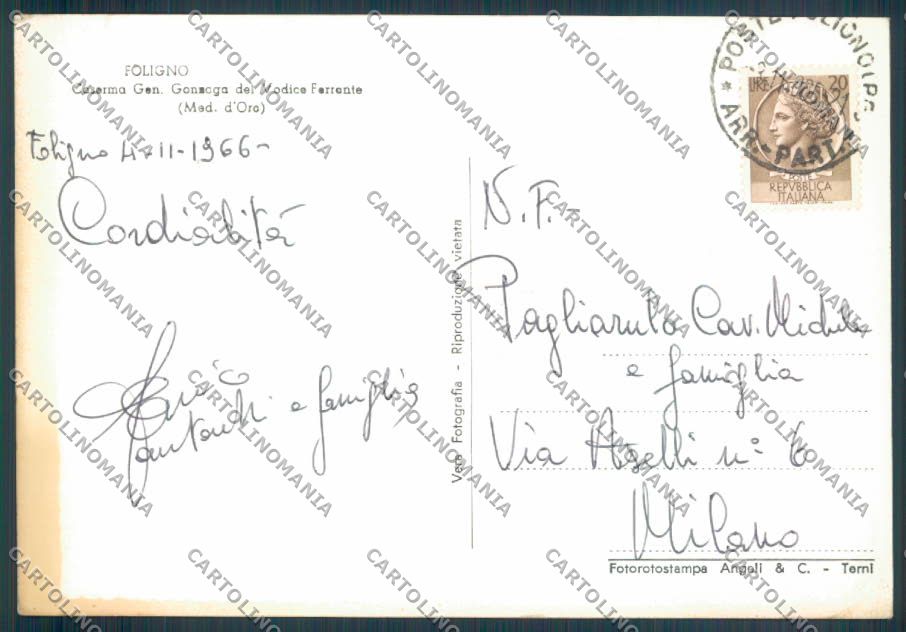 FOLIGNO
Caserma Gen. Gonzaga del Vodice Ferrante
(Med. d'Oro)
Foligno 4-11-1966-
Cordialità
e famiglia
Vera Fotografia - Riproduzione vietata
POSTE FOLIGNO
ARR.-PART.
LIRE 20
POSTE
REPVBBLICA
ITALIANA
N. F.-
Pagliarulo Cav. Michele
e famiglia
Via Aselli n° 6
Milano
Fotorotostampa Angeli & C. - Terni
CARTOLINOMANIA